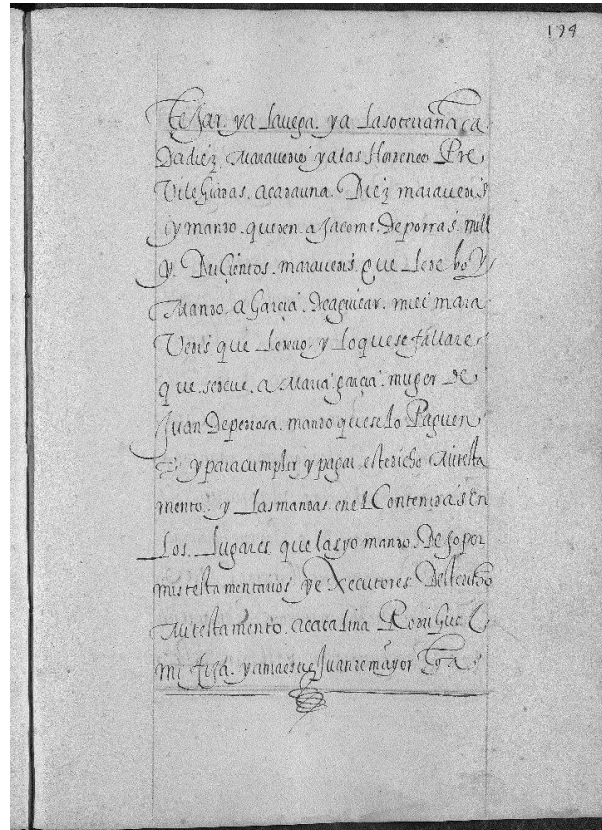 194
tejar. ya la vega. ya la soterraña ca
Da diez maravedis yalas Hordenes Pre
Vile Giadas. acadauna. Diez maravedis
y mando. queden. a Jacome. De porras. mill
y. Ducientos. maravedis. que Le debo y
Mando. a Garcia. de aguilar. mill mara
Vedis que Le devo. y Lo que se fallare
que. se deve. a Maria garcia. muger de
Juan De pedrosa. mando que se lo Paguen
y para cumplir y pagar. este dicho Mi testa
mento. y Las mandas. en el Contenidas En
Los. Lugares que las yo mando. Dejo por
mis testamentarios y e Xecutores Deste dicho
Mi testamento. a catalina Rodriguez
mi fija. y a maestre Juan de mayor ga